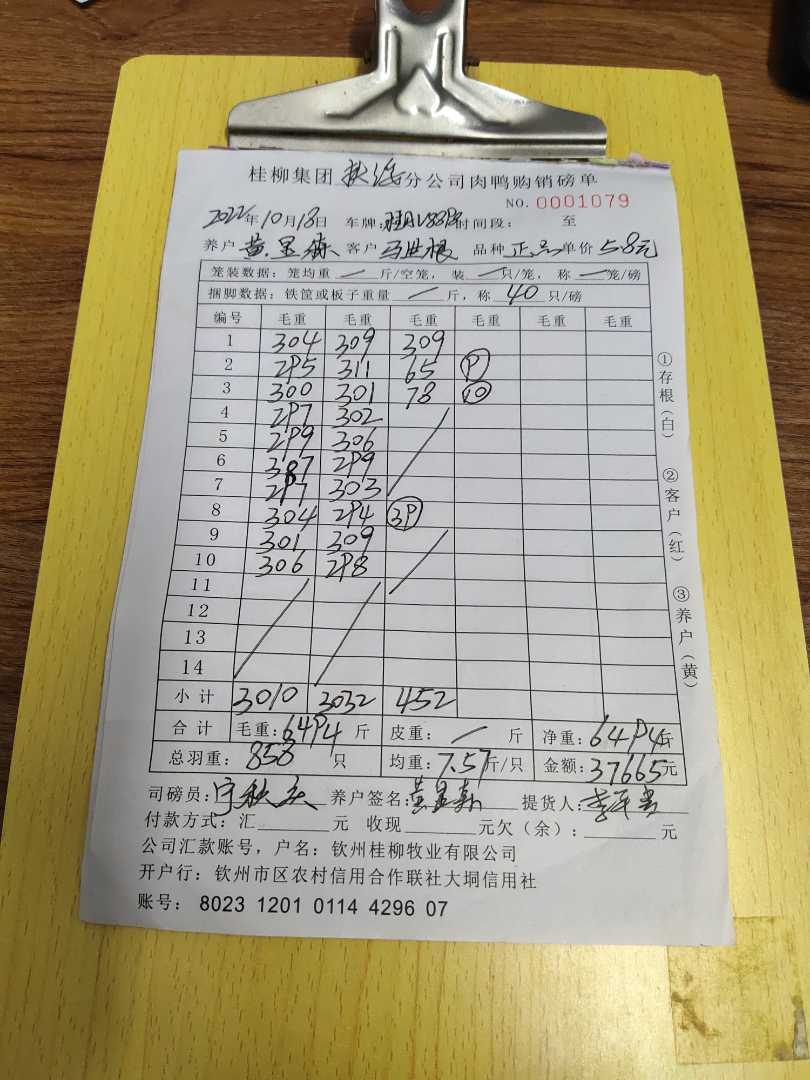 桂柳集团 钦州 分公司肉鸭购销磅单
NO. 0001079
2022年10月18日 车牌: 时间段: 至
养户 黄 客户 马世根 品种 正品 单价 5.8元
笼装数据：笼均重 / 斤/空笼， 装 / 只/笼， 称 / 笼/磅
捆脚数据：铁筐或板子重量 / 斤，称 40 只/磅
编号 毛重 毛重 毛重 毛重 毛重 毛重
1 304 309 309
2 295 311 65 9
3 300 301 78 10
4 297 302
5 299 306
6 387 299
7 297 303
8 304 294 39
9 301 309
10 306 298
11
12
13
14
小计 3010 3032 452
合计 毛重: 6494 斤 皮重: / 斤 净重: 6494斤
总羽重: 858 只 均重: 7.57斤/只 金额: 37665元
司磅员: 养户签名: 黄 提货人: 李
付款方式: 汇 元 收现 元欠（余）: 元
公司汇款账号，户名: 钦州桂柳牧业有限公司
开户行: 钦州市区农村信用合作联社大垌信用社
账号: 8023 1201 0114 4296 07
①存根（白）
②客户（红）
③养户（黄）